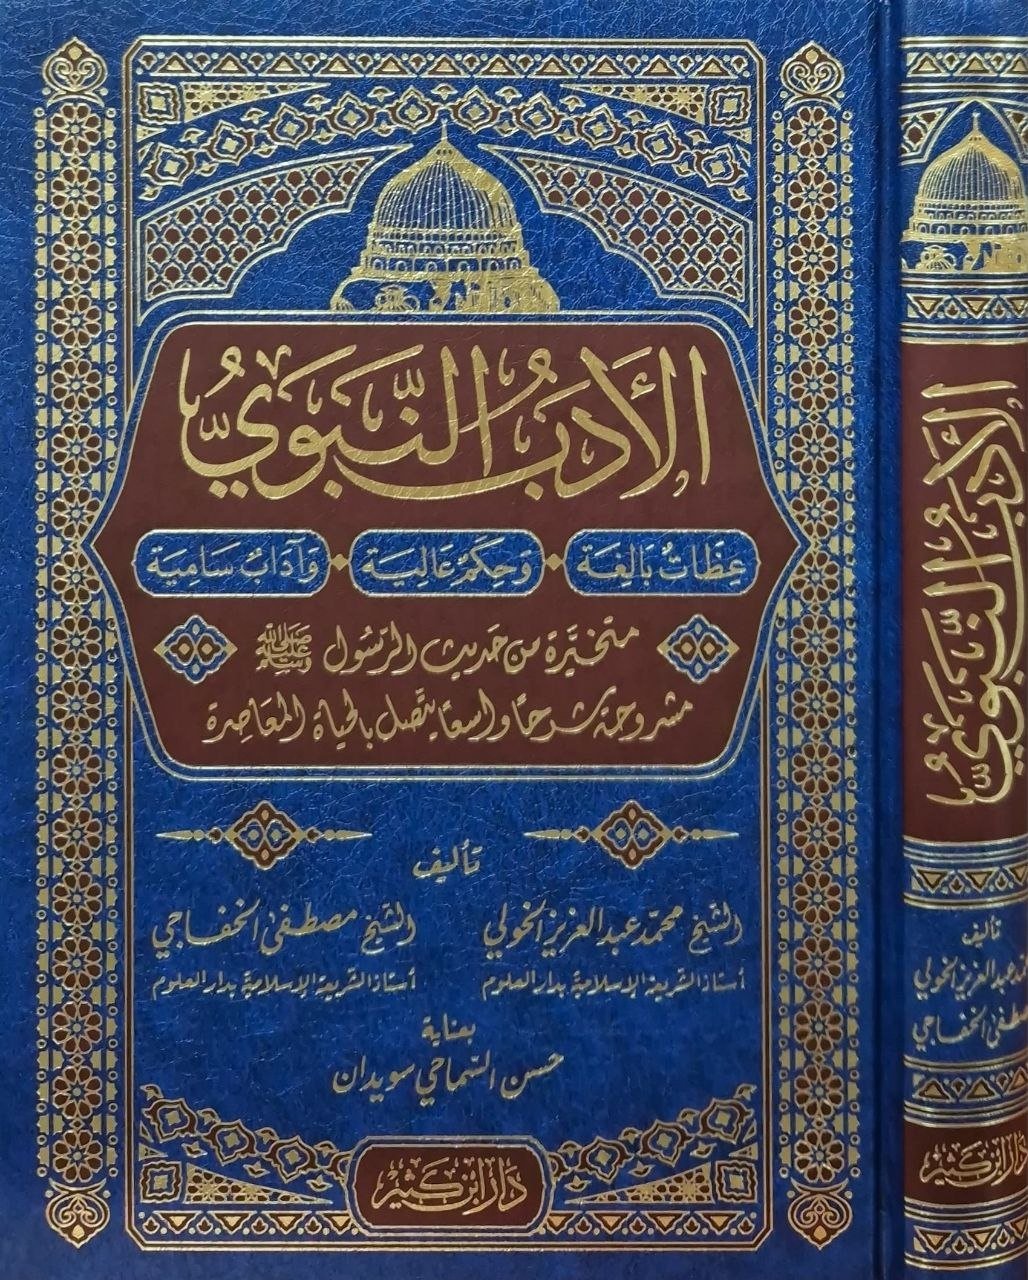 الأَدَبُ النَّبَوِيُّ
عِظَاتٌ بَالِغَة وَحِكَمٌ عَالِيَة وَآدَابٌ سَامِيَة
متخيَّرة من حديث الرسُول ﷺ
مشروحة شرحًا واسعًا يتَّصل بالحياة المعَاصِرة
تأليف
الشيخ محمّد عبد العزيز الخولي
أستاذ الشريعة الإسلامية بدار العلوم
الشيخ مصطفى الخفاجي
أستاذ الشريعة الإسلامية بدار العلوم
بعناية
حسن السماحي سويدان
دَار ابْن كَثير
الأَدَبُ النَّبَوِيُّ
تأليف
عبد العزيز الخولي
مصطفى الخفاجي
دَار ابْن كَثير